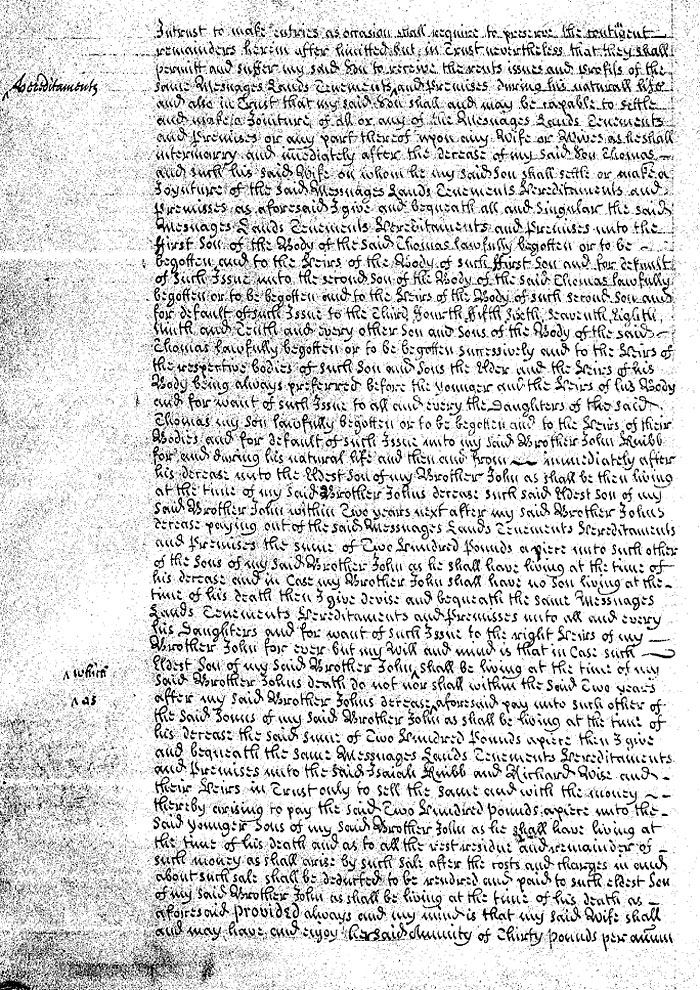 Intrust to make entries as occasion shall require to preserve the contigent
remainders herein after limitted but in Trust nevertheless that they shall
permitt and suffer my said Son to receive the rents issues and profits of the
Hereditaments
same Messuages Lands Tenements and Premises during his naturall life
and also in Trust that my said Son shall and may be capable to settle
and make a Jointure of all or any of the Messuages Lands Tenements
and Premises or any part thereof upon any Wife or Wives as he shall
intermarry and imediately after the decease of my said Son Thomas
and such his said Wife on whom he my said Son shall settle or make a
Joynture of the said Messuages Lands Tenements Hereditaments and
Premisses as aforesaid I give and bequeath all and Singular the said
Messuages Lands Tenements Hereditaments and Premises unto the
ffirst Son of the Body of the said Thomas lawfully begotten or to be
begotten and to the Heirs of the Body of such ffirst Son and for default
of such Issue unto the second Son of the Body of the said Thomas lawfully
begotten or to be begotten and to the Heirs of the Body of such second Son and
for default of such Issue to the Third ffourth ffifth Sixth Seaventh Eighth
Ninth and Tenth and every other Son and Sons of the Body of the said
Thomas lawfully begotten or to be begotten successively and to the Heirs of
the respective bodies of such Son and Sons the Elder and the Heirs of his
Body being always preferred before the younger and the Heirs of his Body
and for want of such Issue to all and every the Daughters of the said
Thomas my Son lawfully begotten or to be begotten and to the Heirs of their
Bodies and for default of such Issue unto my said Brother John Knibb
for and during his natural life and then and from immediately after
his decease unto the Eldest Son of my Brother John as shall be then living
at the time of my said Brother Johns decease such said Eldest Son of my
said Brother John within Two years next after my said Brother John's
decease paying out of the said Messuages Lands Tenements Hereditaments
and Premises the sume of Two Hundred Pounds a piece unto such other
of the Sons of my said Brother John as he shall have living at the time of
his decease and in Case my Brother John shall have no Son living at the
time of his death then I give devise and bequeath the same Messuages
Lands Tenements Hereditaments and Premisses unto all and every
his Daughters and for want of such Issue to the right Heirs of my
Brother John for ever but my Will and mind is that in Case such
Eldest Son of my said Brother John shall be living at the time of my
which
said Brother Johns death do not nor shall within the said Two years
as
after my said Brother Johns decease aforesaid pay unto such other of
the said Sonns of my said Brother John as shall be living at the time of
his decease the said sume of Two Hundred Pounds apiece then I give
and bequeath the same Messuages Lands Tenements Hereditaments
and Premises unto the said Isaiah Knibb and Richard Wise and
their Heirs in Trust only to sell the same and with the money
thereby arising to pay the said Two Hundred Pounds apiece unto the
said younger Sons of my said Brother John as he shall have living at
the time of his death and as to all the rest residue and remainder of
such money as shall arise by such sale after the costs and charges in and
about such sale shall be deducted to be rendred and paid to such eldest Son
of my said Brother John as shall be living at the time of his death as
aforesaid Provided always and my mind is that my said Wife shall
and may have and enjoy her said Annuity of Thirty Pounds per annum